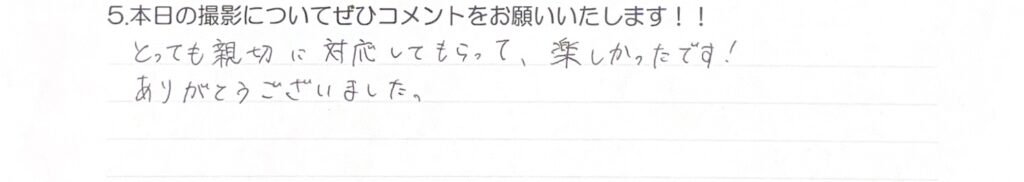 5.本日の撮影についてぜひコメントをお願いいたします！！
とっても親切に対応してもらって、楽しかったです！
ありがとうございました。